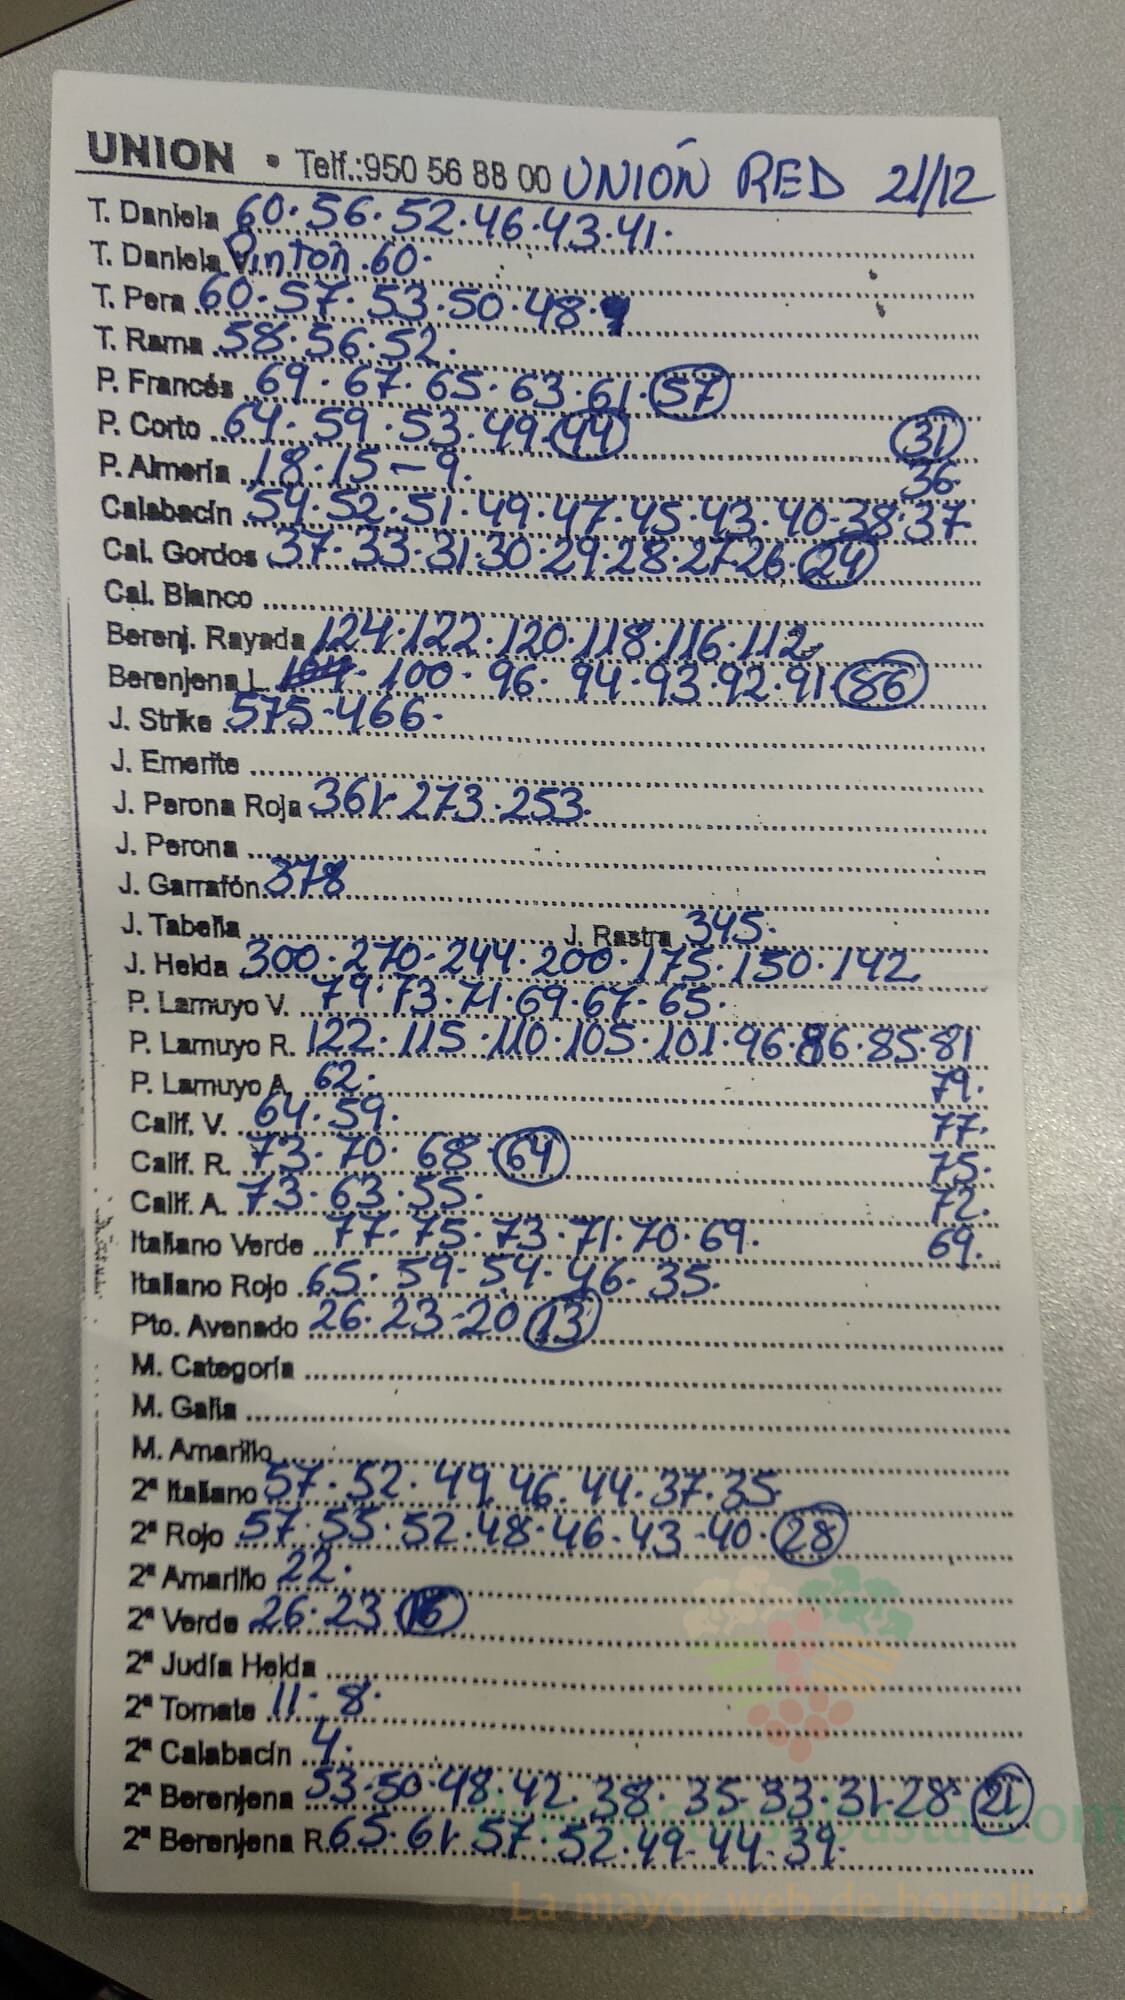 UNION • Telf.:950 56 88 00 UNIÓN RED 21/12
T. Daniela 60·56·52·46·43·41·
T. Daniela Pinton 60·
T. Pera 60·57·53·50·48·
T. Rama 58·56·52·
P. Francés 69·67·65·63·61·57
P. Corto 64·59·53·49·44 31
P. Almería 18·15–9· 36·
Calabacín 54·52·51·49·47·45·43·40·38·37·
Cal. Gordos 37·33·31·30·29·28·27·26·24
Cal. Blanco
Berenj. Rayada 124·122·120·118·116·112
Berenjena L. 100·96·94·93·92·91·86
J. Strike 575-466·
J. Emerite
J. Perona Roja 361·273·253·
J. Perona
J. Garrafón 378
J. Tabeña J. Rastra 345·
J. Helda 300·270·244·200·175·150·142
P. Lamuyo V. 79·73·71·69·67·65·
P. Lamuyo R. 122·115·110·105·101·96·86·85·81
P. Lamuyo A. 62· 79·
Calif. V. 64·59· 77·
Calif. R. 73·70·68·64 75·
Calif. A. 73·63·55· 72·
Italiano Verde 77·75·73·71·70·69· 69·
Italiano Rojo 65·59·54·46·35·
Pto. Avenado 26·23-20 13
M. Categoría
M. Galia
M. Amarillo
2ª Italiano 57·52·49·46·44·37·35
2ª Rojo 57·55·52·48·46·43·40·28
2ª Amarillo 22·
2ª Verde 26·23 16
2ª Judía Helda
2ª Tomate 11-8·
2ª Calabacín 4·
2ª Berenjena 53·50·48·42·38·35·33·31·28·21
2ª Berenjena R. 65·61·57·52·49·44·39·
La mayor web de hortalizas